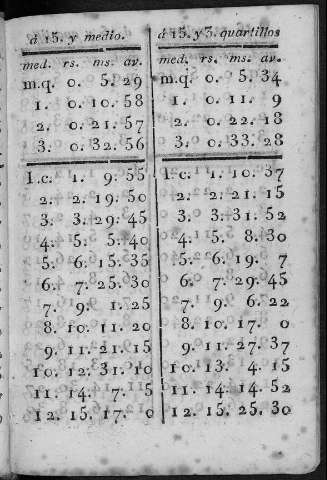 á 15. y medio.
med. rs. ms. av.
m.q. 0. 5. 29
1. 0. 10. 58
2. 0. 21. 57
3. 0. 32. 56
1.c. 1. 9. 55
2. 2. 19. 50
3. 3. 29. 45
4. 5. 5. 40
5. 6. 15. 35
6. 7. 25. 30
7. 9. 1. 25
8. 10. 11. 20
9. 11. 21. 15
10. 12. 31. 10
11. 14. 7. 5
12. 15. 17. 0
á 15. y 3. quartillos
med. rs. ms. av.
m.q. 0. 5. 34
1. 0. 11. 9
2. 0. 22. 18
3. 0. 33. 28
1.c. 1. 10. 37
2. 2. 21. 15
3. 3. 31. 52
4. 5. 8. 30
5. 6. 19. 7
6. 7. 29. 45
7. 9. 6. 22
8. 10. 17. 0
9. 11. 27. 37
10. 13. 4. 15
11. 14. 14. 52
12. 15. 25. 30